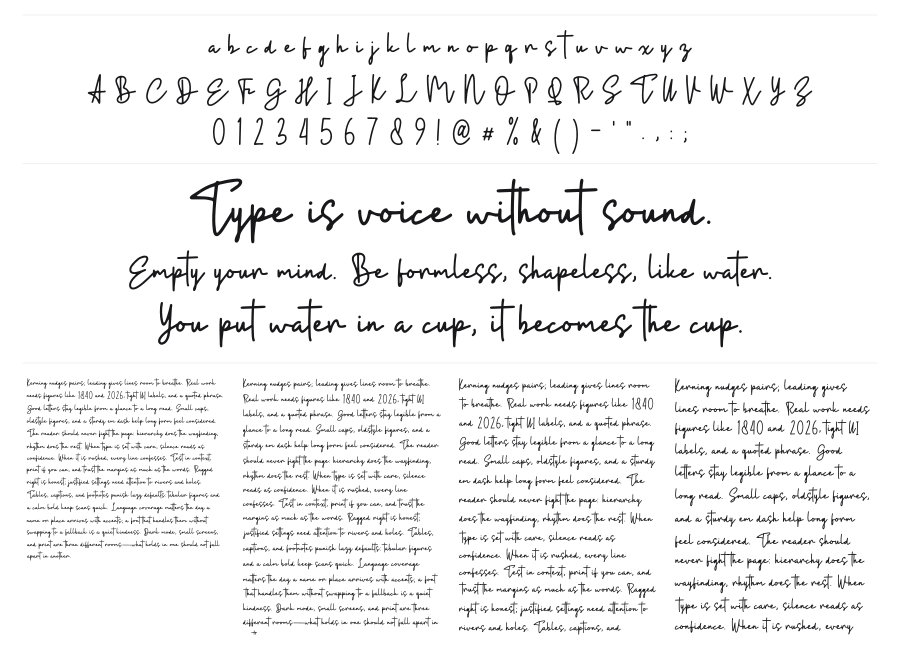 a b c d e f g h i j k l m n o p q r s t u v w x y z
A B C D E F G H I J K L M N O P Q R S T U V W X Y Z
0 1 2 3 4 5 6 7 8 9 ! @ # % & ( ) - ' " . , : ;
Type is voice without sound.
Empty your mind. Be formless, shapeless, like water.
You put water in a cup, it becomes the cup.
Kerning nudges pairs; leading gives lines room to breathe. Real work
needs figures like 1840 and 2026, tight UI labels, and a quoted phrase.
Good letters stay legible from a glance to a long read. Small caps,
oldstyle figures, and a sturdy em dash help long form feel considered.
The reader should never fight the page: hierarchy does the wayfinding,
rhythm does the rest. When type is set with care, silence reads as
confidence. When it is rushed, every line confesses. Test in context,
print if you can, and trust the margins as much as the words. Ragged
right is honest; justified settings need attention to rivers and holes.
Tables, captions, and footnotes punish lazy defaults; tabular figures and
a calm bold keep scans quick. Language coverage matters the day a
name or place arrives with accents; a font that handles them without
swapping to a fallback is a quiet kindness. Dark mode, small screens,
and print are three different rooms—what holds in one should not fall
apart in another.
Kerning nudges pairs; leading gives lines room to breathe.
Real work needs figures like 1840 and 2026, tight UI
labels, and a quoted phrase. Good letters stay legible from a
glance to a long read. Small caps, oldstyle figures, and a
sturdy em dash help long form feel considered. The reader
should never fight the page: hierarchy does the wayfinding,
rhythm does the rest. When type is set with care, silence
reads as confidence. When it is rushed, every line
confesses. Test in context, print if you can, and trust the
margins as much as the words. Ragged right is honest;
justified settings need attention to rivers and holes. Tables,
captions, and footnotes punish lazy defaults; tabular figures
and a calm bold keep scans quick. Language coverage
matters the day a name or place arrives with accents; a font
that handles them without swapping to a fallback is a quiet
kindness. Dark mode, small screens, and print are three
different rooms—what holds in one should not fall apart in
Kerning nudges pairs; leading gives lines room
to breathe. Real work needs figures like 1840
and 2026, tight UI labels, and a quoted phrase.
Good letters stay legible from a glance to a long
read. Small caps, oldstyle figures, and a sturdy
em dash help long form feel considered. The
reader should never fight the page: hierarchy
does the wayfinding, rhythm does the rest. When
type is set with care, silence reads as
confidence. When it is rushed, every line
confesses. Test in context, print if you can, and
trust the margins as much as the words. Ragged
right is honest; justified settings need attention to
rivers and holes. Tables, captions, and
Kerning nudges pairs; leading gives
lines room to breathe. Real work needs
figures like 1840 and 2026, tight UI
labels, and a quoted phrase. Good
letters stay legible from a glance to a
long read. Small caps, oldstyle figures,
and a sturdy em dash help long form
feel considered. The reader should
never fight the page: hierarchy does the
wayfinding, rhythm does the rest. When
type is set with care, silence reads as
confidence. When it is rushed, every